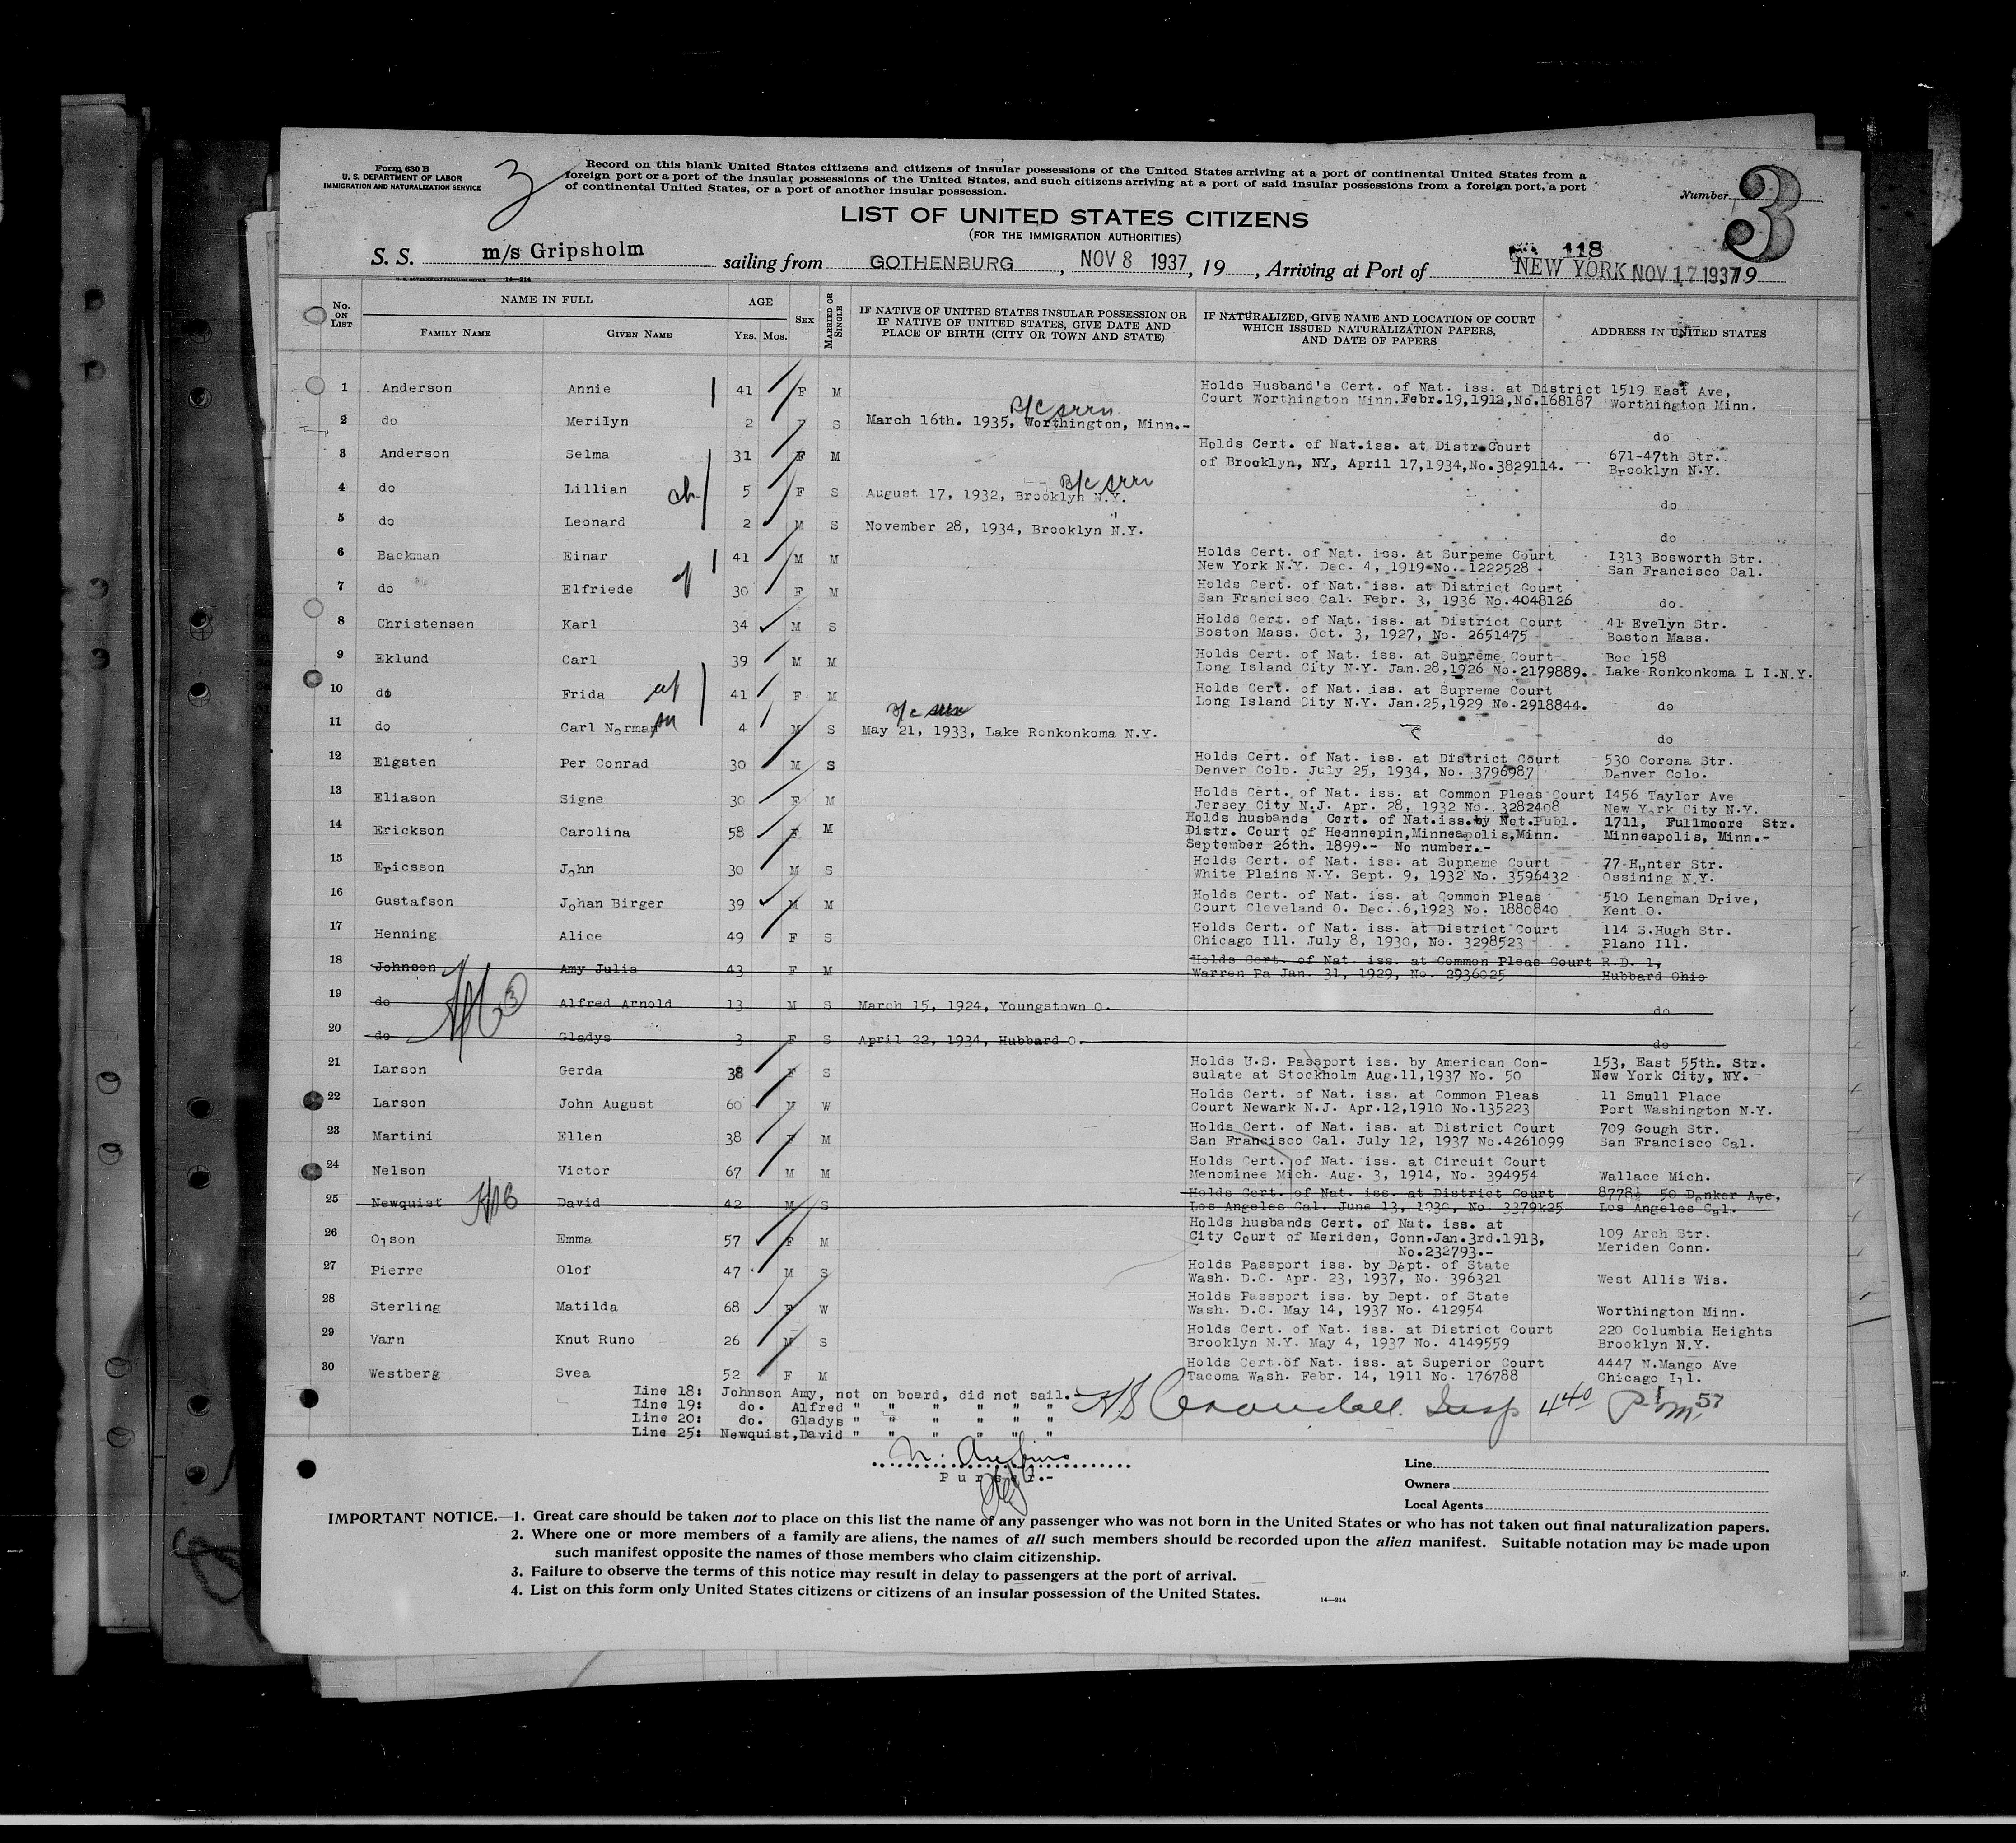 Form 630 B
U. S. DEPARTMENT OF LABOR
IMMIGRATION AND NATURALIZATION SERVICE
3
Record on this blank United States citizens and citizens of insular possessions of the United States arriving at a port of continental United States from a
foreign port or a port of the insular possessions of the United States, and such citizens arriving at a port of said insular possessions from a foreign port, a port
of continental United States, or a port of another insular possession.
Number 3
LIST OF UNITED STATES CITIZENS
(FOR THE IMMIGRATION AUTHORITIES)
118
S. S. m/s Gripsholm sailing from GOTHENBURG, NOV 8 1937, 19 , Arriving at Port of NEW YORK NOV 17 1937 19
U. S. GOVERNMENT PRINTING OFFICE 14—214
No. ON LIST NAME IN FULL FAMILY NAME GIVEN NAME AGE YRS. MOS. SEX MARRIED OR SINGLE IF NATIVE OF UNITED STATES INSULAR POSSESSION OR IF NATIVE OF UNITED STATES, GIVE DATE AND PLACE OF BIRTH (CITY OR TOWN AND STATE) IF NATURALIZED, GIVE NAME AND LOCATION OF COURT WHICH ISSUED NATURALIZATION PAPERS, AND DATE OF PAPERS ADDRESS IN UNITED STATES
1 Anderson Annie 41 F M Holds Husband's Cert. of Nat. iss. at District 1519 East Ave,
Court Worthington Minn.Febr.19,1912,No.168187 Worthington Minn.
2 do Merilyn 2 F S March 16th. 1935, Worthington, Minn.- do
3 Anderson Selma 31 F M Holds Cert. of Nat.iss. at Distr.Court 671-47th Str.
of Brooklyn, NY, April 17,1934,No.3829114. Brooklyn N.Y.
4 do Lillian 5 F S August 17, 1932, Brooklyn N.Y. do
5 do Leonard 2 M S November 28, 1934, Brooklyn N.Y. do
6 Backman Einar 41 M M Holds Cert. of Nat. iss. at Surpeme Court 1313 Bosworth Str.
New York N.Y. Dec. 4, 1919 No. 1222528 San Francisco Cal.
7 do Elfriede 30 F M Holds Cert. of Nat. iss. at District Court
San Francisco Cal. Febr. 3, 1936 No.4048126 do
8 Christensen Karl 34 M S Holds Cert. of Nat. iss. at District Court 41 Evelyn Str.
Boston Mass. Oct. 3, 1927, No. 2651475 Boston Mass.
9 Eklund Carl 39 M M Holds Cert. of Nat. iss. at Supreme Court Boc 158
Long Island City N.Y. Jan.28,1926 No.2179889. Lake Ronkonkoma L I.N.Y.
10 do Frida 41 F M Holds Cert. of Nat. iss. at Supreme Court
Long Island City N.Y. Jan.25,1929 No.2918844. do
11 do Carl Norman 4 M S May 21, 1933, Lake Ronkonkoma N.Y. do
12 Elgsten Per Conrad 30 M S Holds Cert. of Nat. iss. at District Court 530 Corona Str.
Denver Colo. July 25, 1934, No. 3796987 Denver Colo.
13 Eliason Signe 30 F M Holds Cert. of Nat. iss. at Common Pleas Court 1456 Taylor Ave
Jersey City N.J. Apr. 28, 1932 No. 3282408 New York City N.Y.
14 Erickson Carolina 58 F M Holds husbands Cert. of Nat.iss.by Not.Publ. 1711, Fullmoore Str.
Distr. Court of Heennepin,Minneapolis,Minn. Minneapolis, Minn.-
September 26th. 1899.- No number.-
15 Ericsson John 30 M S Holds Cert. of Nat. iss. at Supreme Court 77 Hunter Str.
White Plains N.Y. Sept. 9, 1932 No. 3596432 Ossining N.Y.
16 Gustafson Johan Birger 39 M M Holds Cert. of Nat. iss. at Common Pleas 510 Lengman Drive,
Court Cleveland O. Dec. 6,1923 No. 1880840 Kent O.
17 Henning Alice 49 F S Holds Cert. of Nat. iss. at District Court 114 S.Hugh Str.
Chicago Ill. July 8, 1930, No. 3298523 Plano Ill.
18 Johnson Amy Julia 43 F M Holds Cert. of Nat. iss. at Common Pleas Court R.D. 1,
Warren Pa Jan. 31, 1929, No. 2936025 Hubbard Ohio
19 do Alfred Arnold 13 M S March 15, 1924, Youngstown O. do
20 do Gladys 3 F S April 22, 1934, Hubbard O. do
21 Larson Gerda 38 F S Holds U.S. Passport iss. by American Con- 153, East 55th. Str.
sulate at Stockholm Aug.11,1937 No. 50 New York City, NY.
22 Larson John August 60 M W Holds Cert. of Nat. iss. at Common Pleas 11 Smull Place
Court Newark N.J. Apr.12,1910 No.135223 Port Washington N.Y.
23 Martini Ellen 38 F M Holds Cert. of Nat. iss. at District Court 709 Gough Str.
San Francisco Cal. July 12, 1937 No.4261099 San Francisco Cal.
24 Nelson Victor 67 M M Holds Cert. of Nat. iss. at Circuit Court
Menominee Mich. Aug. 3, 1914, No. 394954 Wallace Mich.
25 Newquist David 42 M S Holds Cert. of Nat. iss. at District Court 8778½ 50 Denker Ave,
Los Angeles Cal. June 13, 1930, No. 3379k25 Los Angeles Cal.
26 Olson Emma 57 F M Holds husbands Cert. of Nat. iss. at
City Court of Meriden, Conn.Jan.3rd.1913, 109 Arch Str.
No.232793.- Meriden Conn.
27 Pierre Olof 47 M S Holds Passport iss. by Dept. of State
Wash. D.C. Apr. 23, 1937, No. 396321 West Allis Wis.
28 Sterling Matilda 68 F W Holds Passport iss. by Dept. of State
Wash. D.C. May 14, 1937 No. 412954 Worthington Minn.
29 Varn Knut Runo 26 M S Holds Cert. of Nat. iss. at District Court 220 Columbia Heights
Brooklyn N.Y. May 4, 1937 No. 4149559 Brooklyn N.Y.
30 Westberg Svea 52 F M Holds Cert.of Nat. iss. at Superior Court 4447 N.Mango Ave
Tacoma Wash. Febr. 14, 1911 No. 176788 Chicago Ill.
Line 18: Johnson Amy, not on board, did not sail.
Line 19: do. Alfred " " " " "
Line 20: do. Gladys " " " " "
Line 25: Newquist,David " " " " "
Purser.-
Line
Owners
Local Agents
IMPORTANT NOTICE.—1. Great care should be taken not to place on this list the name of any passenger who was not born in the United States or who has not taken out final naturalization papers.
2. Where one or more members of a family are aliens, the names of all such members should be recorded upon the alien manifest. Suitable notation may be made upon
such manifest opposite the names of those members who claim citizenship.
3. Failure to observe the terms of this notice may result in delay to passengers at the port of arrival.
4. List on this form only United States citizens or citizens of an insular possession of the United States.
14—214